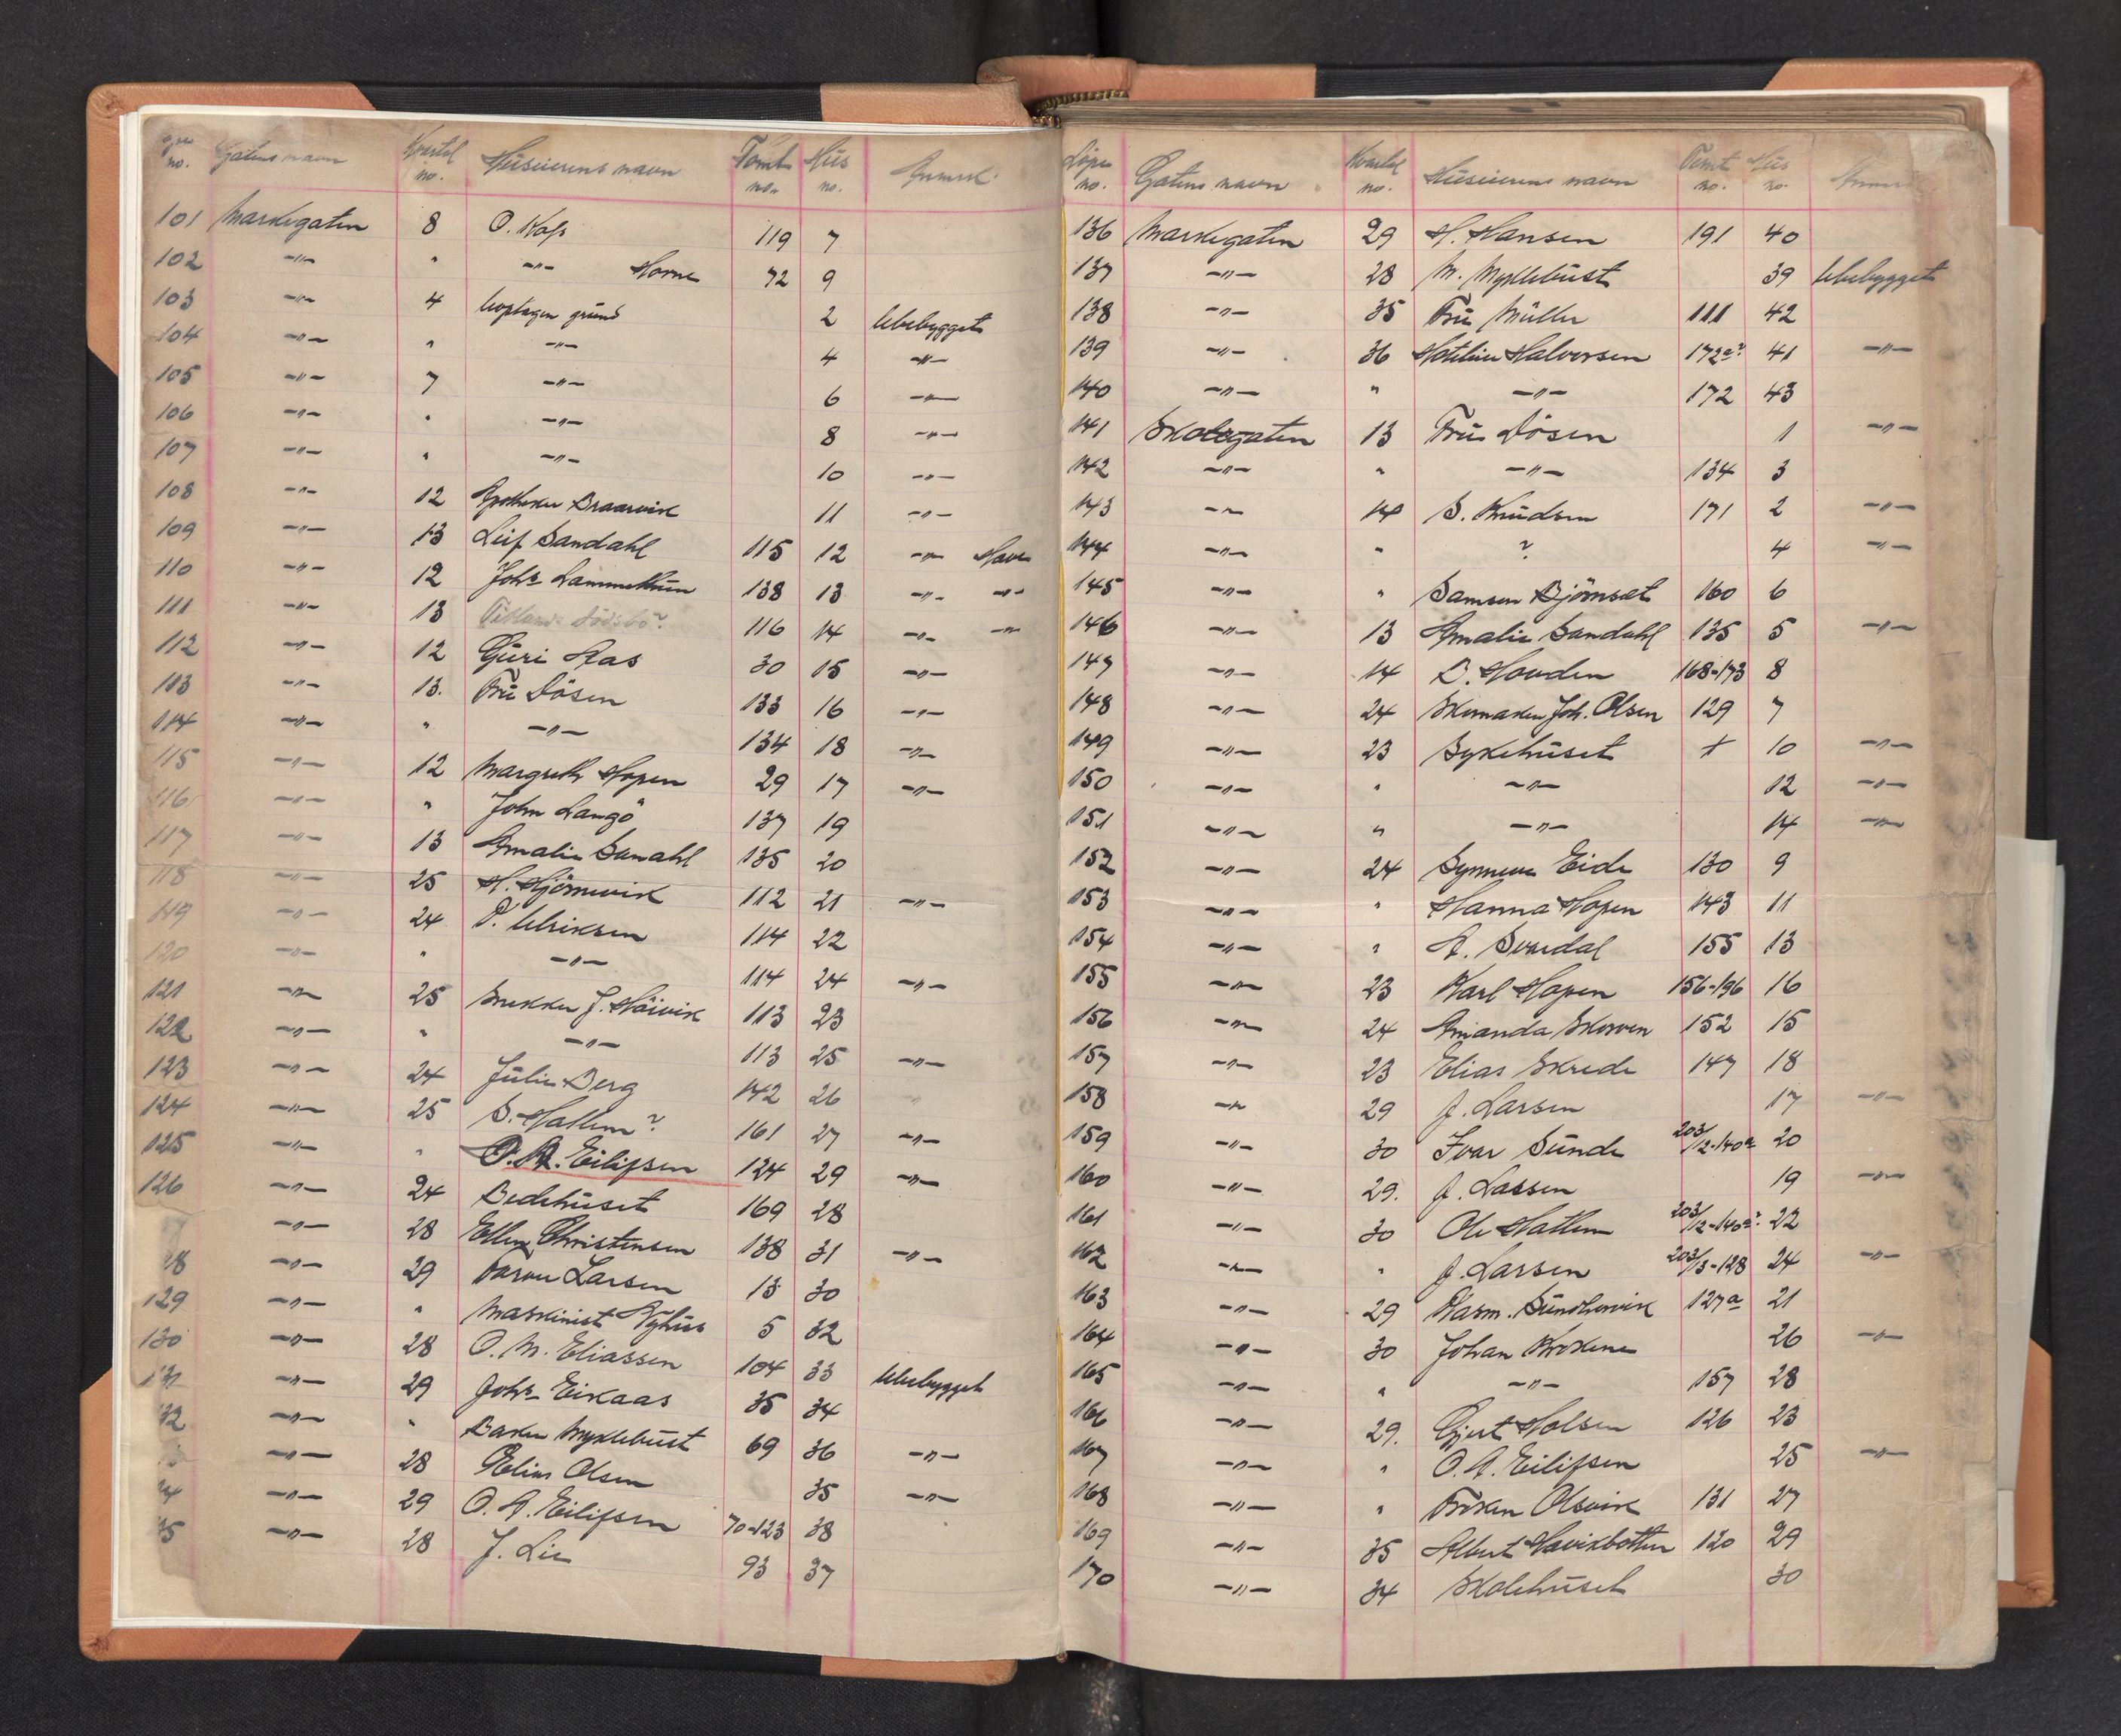 no. Gatens navn Kvartal no. Huseierens navn Tomt no. Hus no. Anmerk.
101 Markegaten 8 O. Kaſs 119 7
102 -"- " -"- Horne 72 9
103 -"- 4 grund 2 Ubebygget
104 -"- " -"- 4 -"-
105 -"- 7 -"- 6 -"-
106 -"- " -"- 8 -"-
107 -"- " -"- 10 -"-
108 -"- 12 Apotheker Braarvik 11 -"-
109 -"- 13 Leif Sandahl 115 12 -"- Have
110 -"- 12 Johs Lammethun 138 13 -"- -"-
111 -"- 13 116 14 -"- -"-
112 -"- 12 Guri Aas 30 15 -"-
113 -"- 13. Fru Dösen 133 16 -"-
114 -"- " -"- 134 18 -"-
115 -"- 12 Margrethe Hopen 29 17 -"-
116 -"- " John Langö 137 19
117 -"- 13 Amalie Sanahl 135 20
118 -"- 25 H. Hjörnevik 112 21 -"-
119 -"- 24 P. Ulriksen 114 22
120 -"- " -"- 114 24 -"-
121 -"- 25 Snekker J. Höivik 113 23
122 -"- " -"- 113 25 -"-
123 -"- 24 Julie Berg 142 26 "
124 -"- 25 S. Hatlem? 161 27 -"-
125 -"- " O. A. Eilifsen 124 29 -"-
126 -"- 24 Bedehuset 169 28
-"- 28 Ellen Christensen 138 31 -"-
28 -"- 29 Larsen 13 30
129 -"- " Maskinist Nyhus 5 32
130 -"- 28 O. M. Eliassen 104 33 Ubebygget
131 -"- 29 Johs Eikaas 35 34
32 -"- " Baker Myklebust 69 36 -"-
-"- 28 Elias Olsen 35 -"-
4 -"- 29 O. A. Eilifsen 70-123 38
35 -"- 28 J. Lie 93 37
Löpe no. Gatens navn Kvartal no. Huseierens navn Tomt no. Hus no. Anmerk
136 Markegaten 29 H. Hansen 191 40
137 -"- 28 M. Myklebust 39 Ubebygget
138 -"- 35 Fru Müller 111 42
139 -"- 36 Halvorsen 172a? 41 -"-
140 -"- " -"- 172 43
141 Skolegaten 13 Fru Dösen 1 -"-
142 -"- " -"- 134 3
143 -"- 14 S. Knudsen 171 2 -"-
144 -"- " ? 4 -"-
145 -"- " Samson Björnset 160 6
146 -"- 13 Amalie Sandahl 135 5 -"-
147 -"- 14 D. Hovden 168-173 8
148 -"- 24 Skomaker Joh. Olsen 129 7
149 -"- 23 Sykehuset + 10 -"-
150 -"- " -"- 12 -"-
151 -"- " -"- 14 -"-
152 -"- 24 Synneve Eide 130 9
153 -"- " Hanna Hopen 143 11
154 -"- " A. Svardal 155 13
155 -"- 23 Karl Hopen 156-196 16
156 -"- 24 Amanda Skorven 152 15
157 -"- 23 Elias Skrede 147 18
158 -"- 29 J. Larsen 17 -"-
159 -"- 30 Ivar Sunde 203/12-140a 20
160 -"- 29. J. Lassen 19 -"-
161 -"- 30 Ole Hatlem 203/12-140a? 22
162 -"- " J. Larsen 203/3-128 24 -"-
163 -"- 29 Rasm. 127a 21
164 -"- 30 Johan Krokene 26 -"-
165 -"- " -"- 157 28
166 -"- 29. Gjert Holsen 126 23
167 -"- " O. A. Eilifsen 25 -"-
168 -"- " Fröken Olsvik 131 27
169 -"- 35 Albert Havikbotten 120 29
170 -"- 34 Skolehuset 30